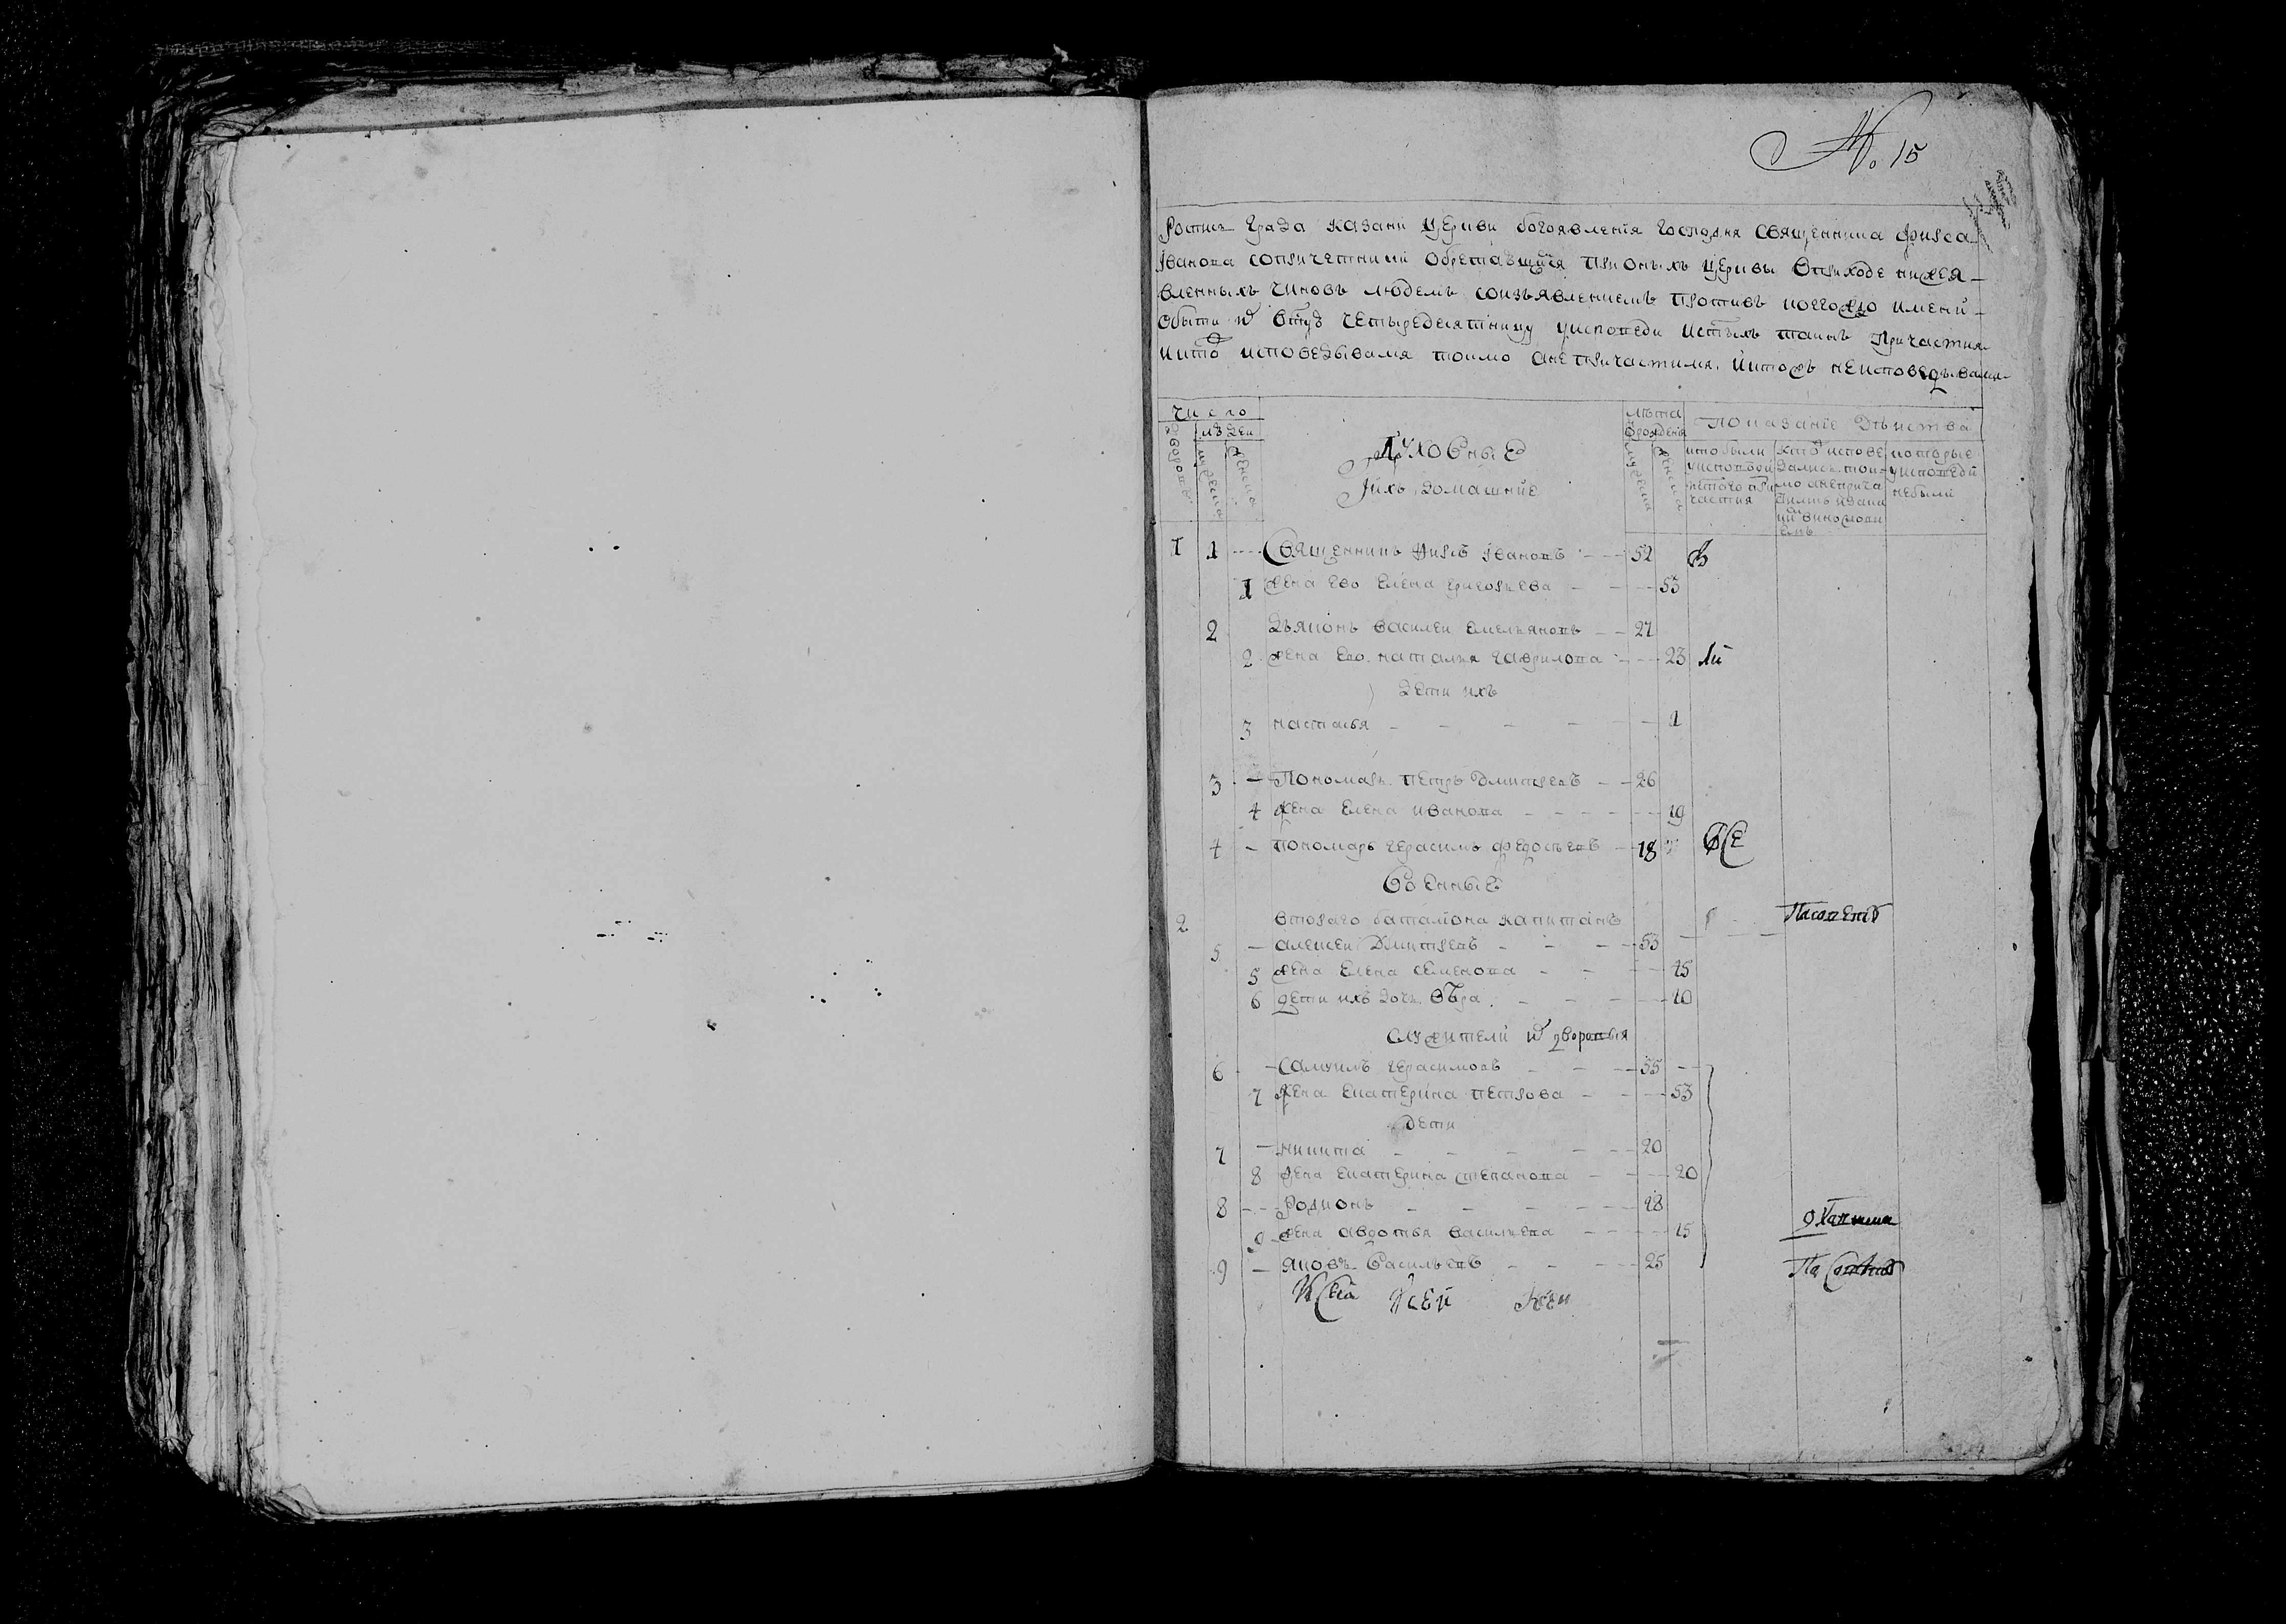 №. 15
Роспись града казани церкви богоявления господня священника фирса
Іванова сопричетники обретающихся при оныхъ церкви вприходе нижея-
вленныхъ чиновъ людемъ соизъявлениемъ противъ коегождо имени
о бытии их встую четыредесятницу уисповеди истыхъ таинъ причастия
икто исповедывался токмо анепричастился. иктожъ неисповедывался
число
лѣта
Показание Дѣиства
дворовъ
людеи
ѿрождения
мужеска
женска
Духовные
Іихъ домашние
мужеска
женска
кто были
уисповеди
истаго при
частия
кто испове
дались ток-
мо анеприча
стились
которые
уисповеди
небыли
1 1 Священникъ Фирсъ Івановъ 52 В
1 жена ево Елена григорьева 53
2 Дьяконъ василеи Емельяновъ 27
2 жена Ево наталья гаврилова 23 Ли
дети ихъ
3 настасья 1
3 Пономарь петръ Дмитревъ 26
4 жена Елена иванова 19
4 пономарь герасимъ федосѣевъ 18 ВСЕ
Военные
2 втораго баталиона капитанъ
5 алексеи Дмитревъ 53
5 жена Елена семенова 45
6 дети ихъ дочь вѣра 10
служители их дворовыя
6 Самоилъ герасимовъ 55
7 жена Екатерина петрова 53
Дети
7 никита 20
8 жена Екатерина степанова 20
8 Родионъ 18
9 жена авдотья васильева 15
9 яковъ Васильевъ 25